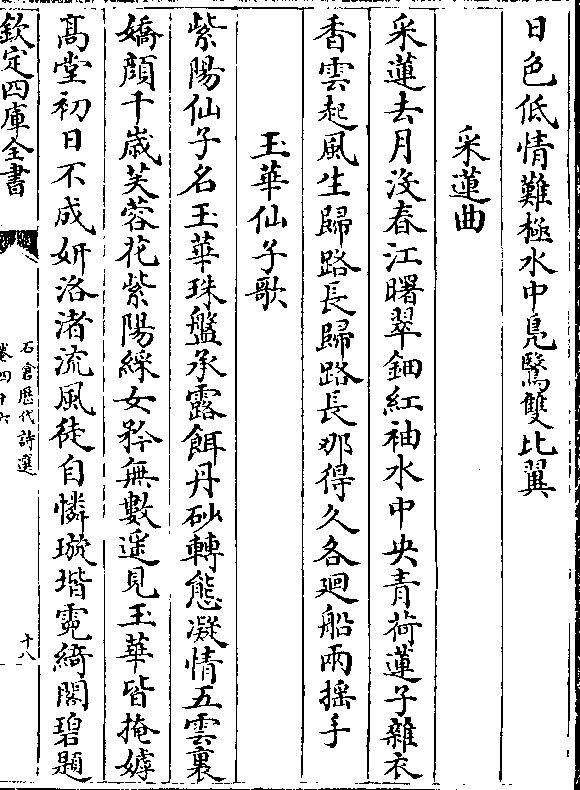 日色低情難極水中鳧鷖雙比翼
采蓮曲
采蓮去月沒春江曙翠鈿紅袖水中央青荷蓮子雜衣
香雲起風生歸路長歸路長那得久各迴船兩揺手
玉華仙子歌
紫陽仙子名玉華珠盤承露餌丹砂轉態凝情五雲裏
嬌顔千歲芙蓉花紫陽綵女矜無數遥見玉華皆掩嫭
髙堂初日不成妍洛渚流風徒自憐璇堦霓綺閣碧題
欽定四庫全書
石倉歴代詩選
卷四十六
十八